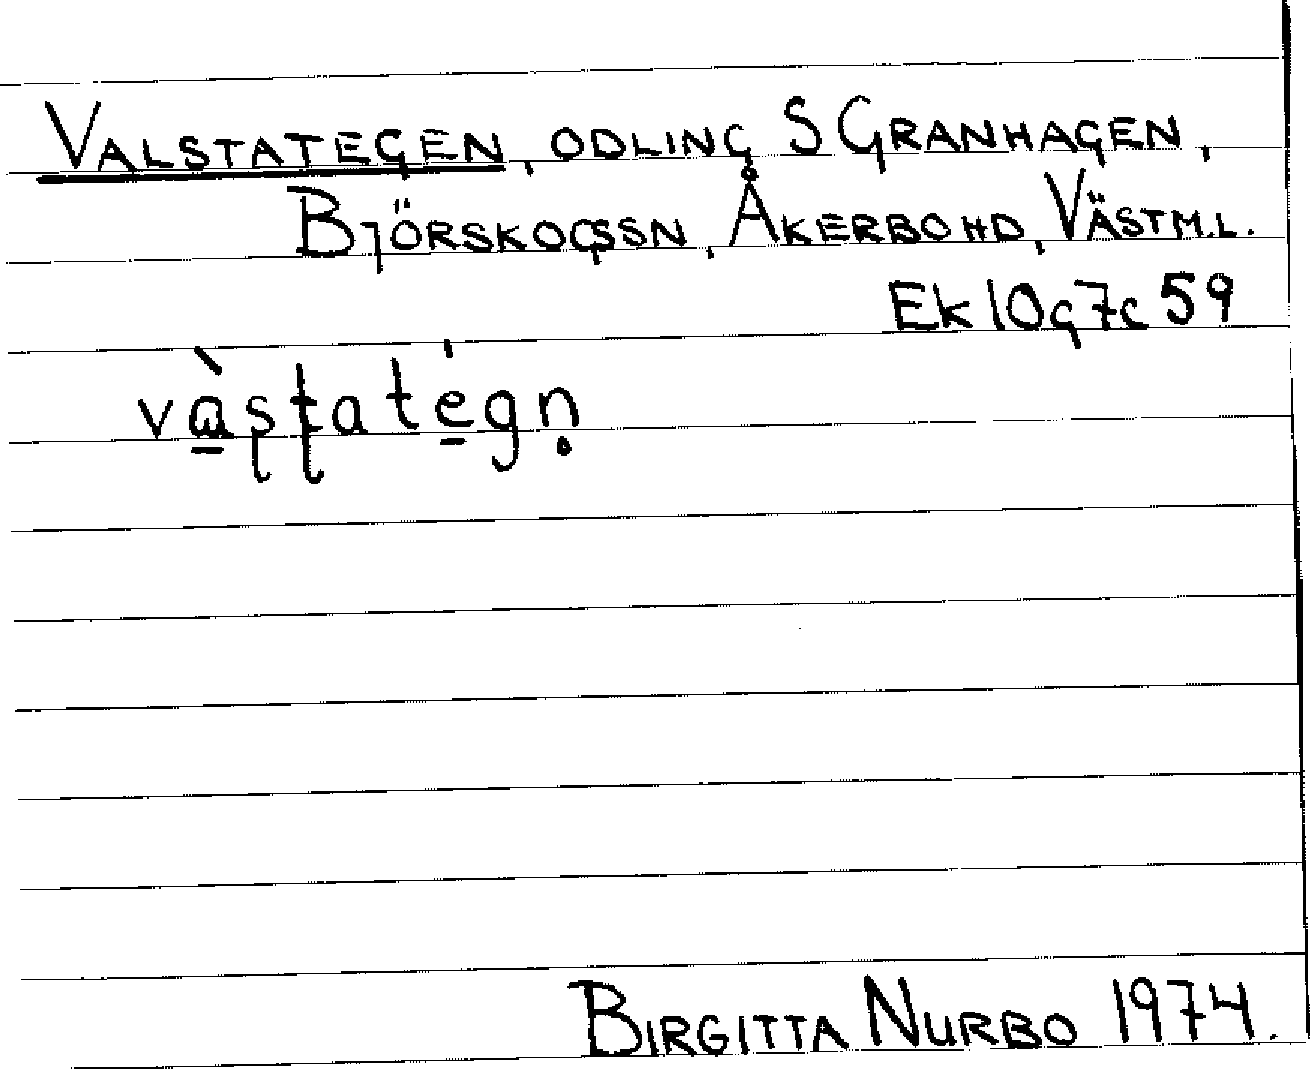 VALSTATEGEN, ODLING S GRANHAGEN,
BJÖRSKOGSSN, ÅKERBO HD, VÄSTM.L.
Ek 10g7c 59
vàs̲ʈatégṇ
BIRGITTA NURBO 1974.